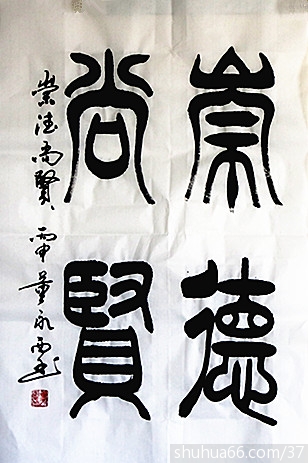 崇德
尚賢
崇德尚賢 丙申 董永西
shuhua66.com/37